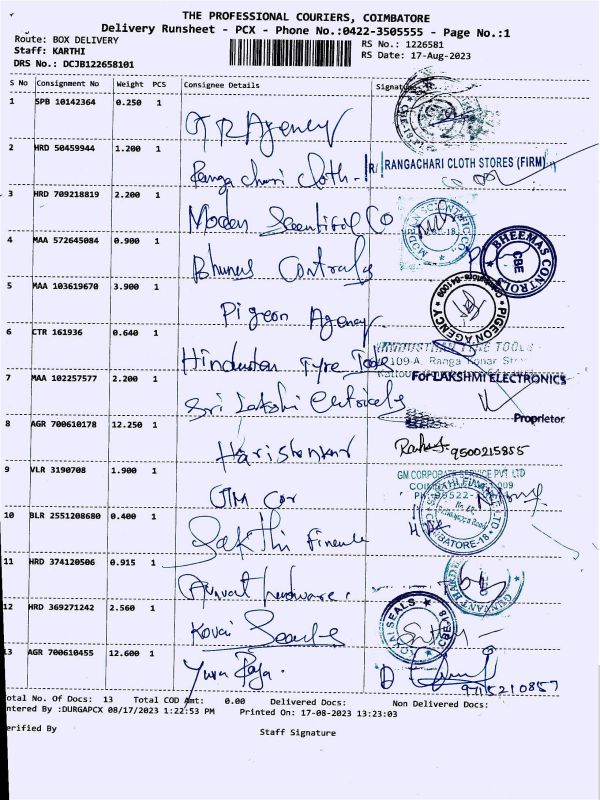 THE PROFESSIONAL COURIERS, COIMBATORE
Delivery Runsheet - PCX - Phone No.:0422-3505555 - Page No.:1
Route: BOX DELIVERY
RS No.: 1226581
Staff: KARTHI
RS Date: 17-Aug-2023
DRS No.: DCJB122658101
S No Consignment No Weight PCS Consignee Details Signature
1 SPB 10142364 0.250 1
G R Agency
2 HRD 50459944 1.200 1
Rangachari cloth
R/ RANGACHARI CLOTH STORES (FIRM)
3 HRD 709218819 2.200 1
Co
MODERN SCIENTIFIC CO
4 MAA 572645084 0.900 1
BHEEMAS CONTROL
CBE
5 MAA 103619670 3.900 1
Pigeon Agency
PIGEON AGENCY
6 CTR 161936 0.640 1
Hindustan Type Tools
HINDUSTHAN TYPE TOOLS
109-A, Ranga
7 MAA 102257577 2.200 1
Sri
For LAKSHMI ELECTRONICS
Proprietor
8 AGR 700610178 12.250 1
Harishankar
9500215855
9 VLR 3190708 1.900 1
GM Cor
GM CORPORATE SERVICE PVT LTD
10 BLR 2551208680 0.400 1
Sakthi Finance
COIMBATORE-18
11 HRD 374120506 0.915 1
hardware
12 HRD 369271242 2.560 1
Kovai Seals
KOVAI SEALS
13 AGR 700610455 12.600 1
Yuva Raja.
9715210857
Total No. Of Docs: 13 Total COD Amt: 0.00 Delivered Docs: Non Delivered Docs:
Entered By :DURGAPCX 08/17/2023 1:22:53 PM Printed On: 17-08-2023 13:23:03
Verified By Staff Signature